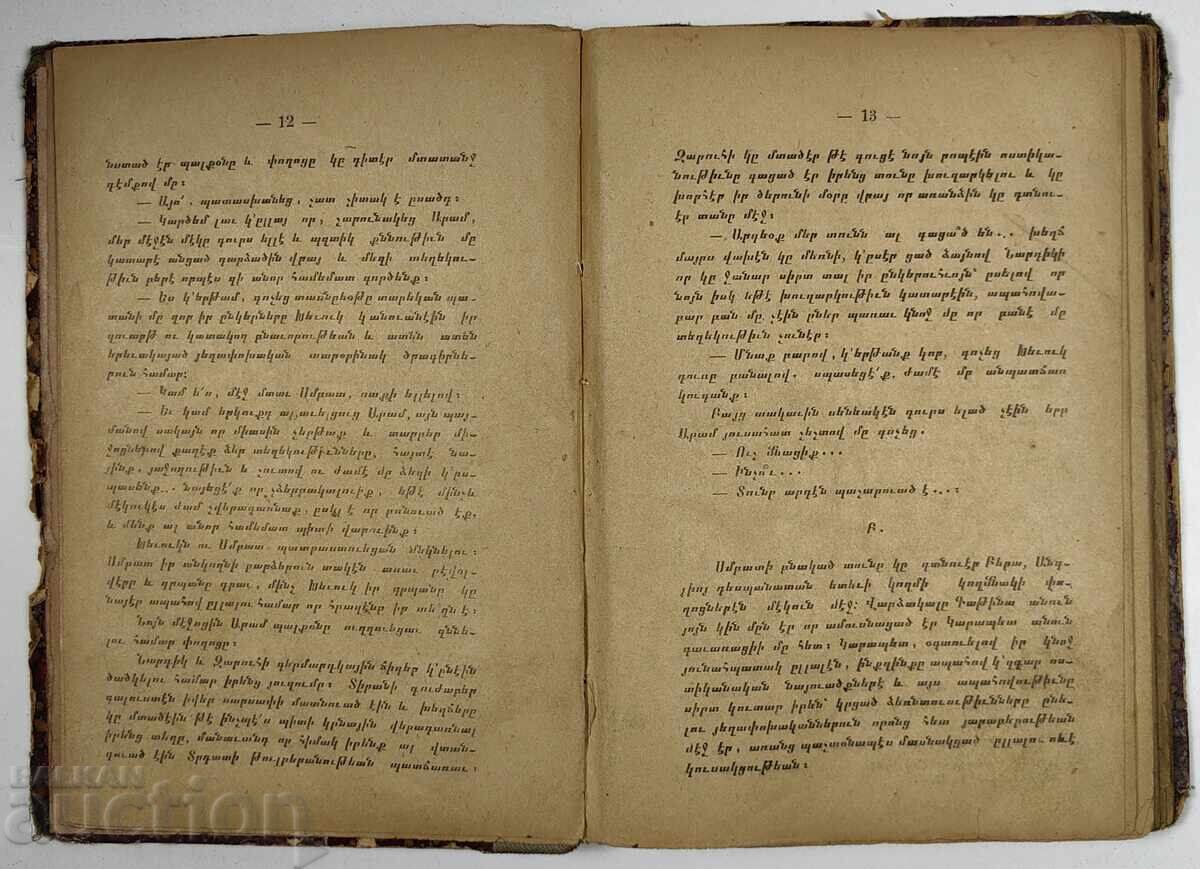 — 12 —
նստած էր պալքօնը և փողոցը կը դիտէր մտատանջ
դէմքով մը։
— Այո՛, պատասխանեց, շատ շիտակ է ըսածդ։
— Կարծեմ լաւ կ'ըլլայ որ, շարունակեց Արամ,
մեր մէջէն մէկը դուրս ելլէ և պզտիկ քննութիւն մը
կատարէ անցած դարձածին վրայ և մեզի տեղեկու-
թիւն բերէ որպէս զի անոր համեմատ գործենք։
— Ես կ'երթամ, գոչեց տասնըեօթը տարեկան պա-
տանի մը զոր իր ընկերները Խեւուկ կանուանէին իր
զուարթ ու կատակող բնաւորութեան և ատեն ատեն
երեւակայած յեղափոխական տարօրինակ ծրագիրնե-
րուն համար։
— Կամ ե՛ս, մէջ մտաւ Սմբատ, ոտքի ելլելով։
— Եւ կամ երկուքդ ալ, աւելցուց Արամ, այն պայ-
մանով սակայն որ միասին չերթաք և տարբեր մի-
ջոցներով քաղէք ձեր տեղեկութիւնները, հայտէ նա-
յինք, յաջողութիւն և շուտով ու ժամէ մը ձեզի կ'ըս-
պասենք... նայեցէ՛ք որ չձերբակալուիք, եթէ մինչև
մէկուկէս ժամ չվերադառնաք, ըսել է որ բռնուած էք,
և մենք ալ անոր համեմատ պիտի վարուինք։
Խեւուկն ու Սմբատ պատրաստուեցան մեկնելու։
Սմբատ իր անկողնի բարձերուն տակէն առաւ րէվօլ-
վէրը և գրպանը դրաւ, մինչ Խեւուկ իր գրպանը կը
նայէր ապահով ըլլալու համար որ հրազէնը իր տեղն է։
Նոյն միջոցին Արամ պալքօնը ուղղուեցաւ զննե-
լու համար փողոցը։
Նարդիկ և Զարուհի գերմարդկային ճիգեր կ'ընէին
ծածկելու համար իրենց յուզումը։ Տիրանի գուժաբեր
գալուստէն իվեր սարսափի մատնուած էին և խեղճերը
կը մտածէին թէ ինչպէ՛ս պիտի կրնային վերադառնալ
իրենց տեղը, մանաւանդ որ հիմակ իրենք ալ վտան-
գուած էին Տրդատի թուլբերանութեան պատճառաւ։
— 13 —
Զարուհի կը մտածէր թէ գուցէ նոյն րոպէին ոստիկա-
նութիւնը գացած էր իրենց տունը խուզարկելու և կը
խորհէր իր ծերունի մօրը վրայ որ առանձին կը գտնու-
էր տանը մէջ։
— Արդեօք մեր տունն ալ գացա՞ծ են... խեղճ
մայրս վախէն կը մեռնի, կ'ըսէր ցած ձայնով Նարդիկի
որ կը ջանար սիրտ տալ իր ընկերուհւոյն՝ ըսելով որ
նոյն իսկ եթէ խուզարկութիւն կատարէին, ապահովա-
բար բան մը չէին ըներ պառաւ կնոջ մը որ բանէ մը
տեղեկութիւն չունէր։
— Մնաք բարով, կ'երթանք կոր, գոչեց Խեւուկ
դուռը բանալով. սպասեցէ՛ք, ժամէ մը անպատճառ
կուգանք։
Բայց տակաւին սենեակէն դուրս ելած չէին երբ
Արամ յուսահատ շեշտով մը գոչեց.
— Ուշ մնացիք...
— Ինչո՞ւ...
— Տունը արդէն պաշարուած է...։
Բ.
Սմբատի բնակած տունը կը գտնուէր Բերա, Անգ-
լիոյ դեսպանատան ետեւի կողմի կողմնակի փո-
ղոցներէն մէկուն մէջ։ Վարձակալը Պաթինա անուն
յոյն կին մըն էր որ ամուսնացած էր Կարապետ անուն
գաւառացիի մը հետ։ Կարապետ, օգտուելով իր կնոջ
յունահպատակ ըլլալէն, ինքզինքը ապահով կ'զգար ոս-
տիկանական նայուածքներէ և այս ապահովութիւնը
սիրտ կուտար իրեն՝ կրցած ձեռնտուութիւնները ընե-
լու յեղափոխականներուն որոնց հետ յարաբերութեան
մէջ էր, առանց պաշտօնապէս մասնակցած ըլլալու ո և է
կուսակցութեան։
BALKAN
auction